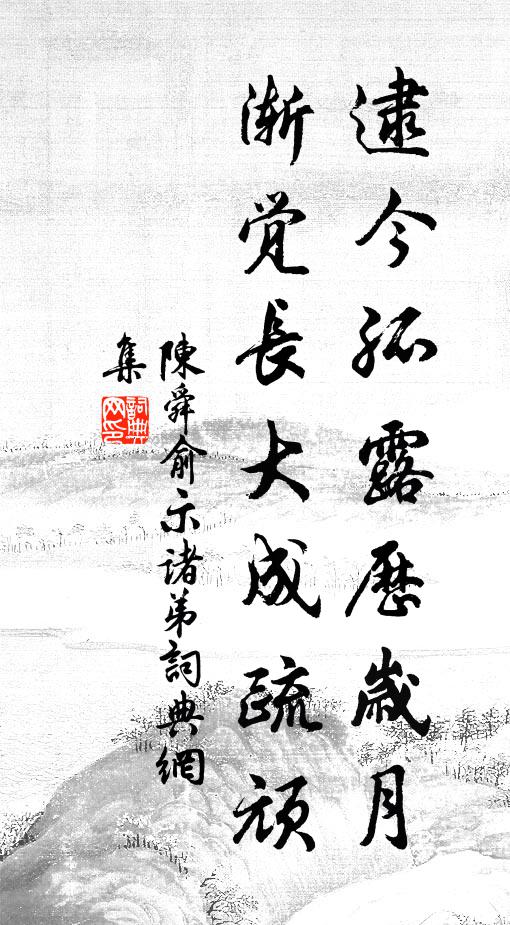 逮今孤露歷歲月
漸覺長大成疏頑
陳舜俞示諸弟詞典網
集
詞典網印